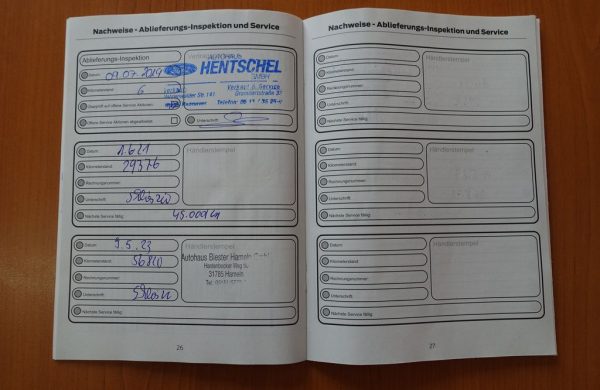 Nachweise - Ablieferungs-Inspektion und Service
Ablieferungs-Inspektion
Datum: 09.07.2019
Kilometerstand: 6
Überprüft auf offene Service Aktionen:
Offene Service Aktionen abgearbeitet:
AUTOHAUS
HENTSCHEL
GMBH
Verkauf u. Service
Unterschrift:
Datum:
Händlerstempel
Kilometerstand: 29376
Rechnungsnummer:
Unterschrift:
Nächste Service fällig: 45.000 km
Datum: 9.5.23
Händlerstempel
Kilometerstand:
Autohaus Biester Hameln
Rechnungsnummer:
31785 Hameln
Unterschrift:
Nächste Service fällig:
26
Nachweise - Ablieferungs-Inspektion und Service
Datum:
Händlerstempel
Kilometerstand:
Rechnungsnummer:
Unterschrift:
Nächste Service fällig:
Datum:
Händlerstempel
Kilometerstand:
Rechnungsnummer:
Unterschrift:
Nächste Service fällig:
Datum:
Händlerstempel
Kilometerstand:
Rechnungsnummer:
Unterschrift:
Nächste Service fällig:
27